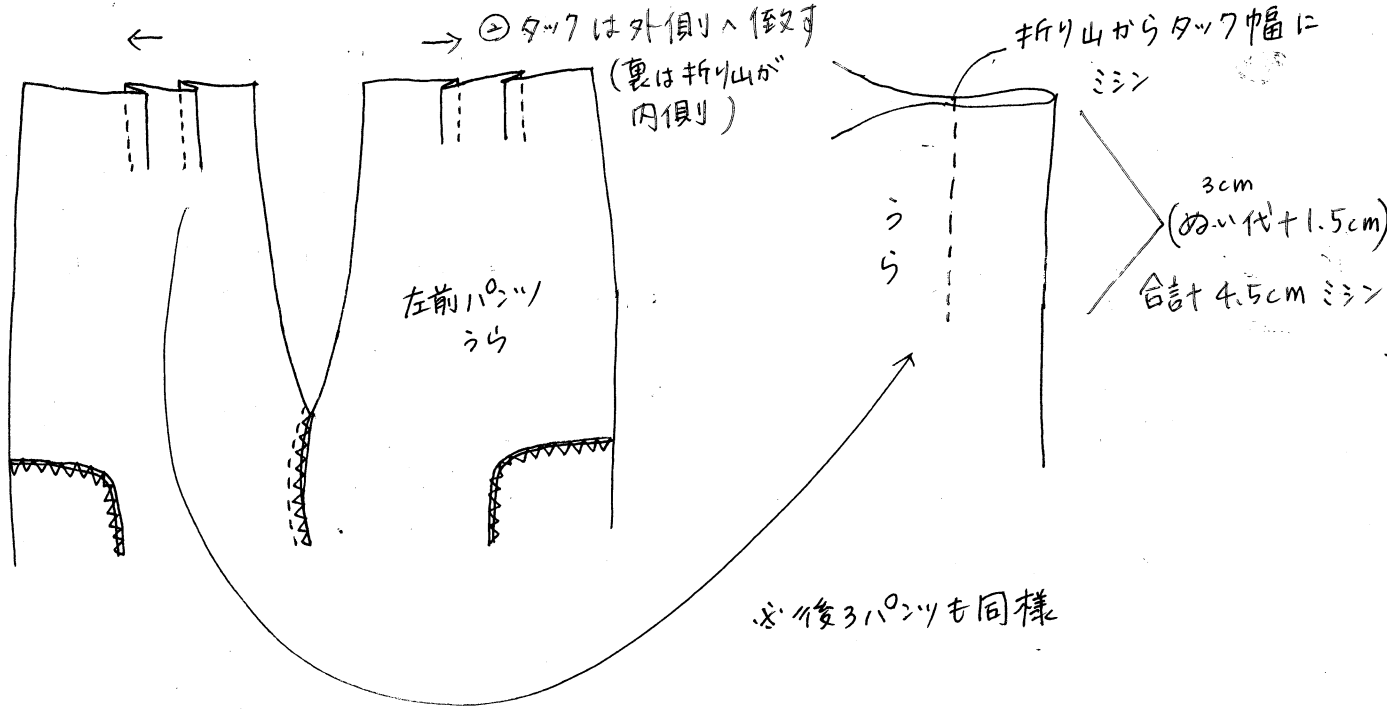 ②タックは外側へ倒す
(裏は折り山が
内側)
折り山からタック幅に
ミシン
3cm
(ぬい代+1.5cm)
合計4.5cmミシン
うら
左前パンツ
うら
※後ろパンツも同様